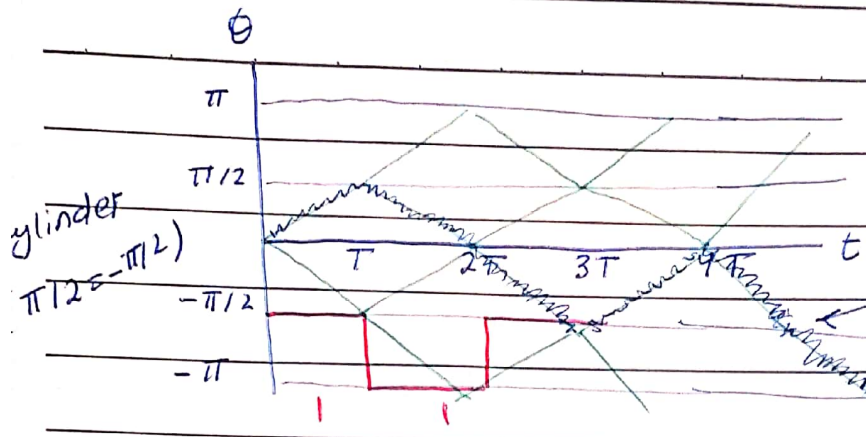 θ
π
π/2
ylinder
π/2 = -π/2)
T 2T 3T 4T t
-π/2
-π
1 1